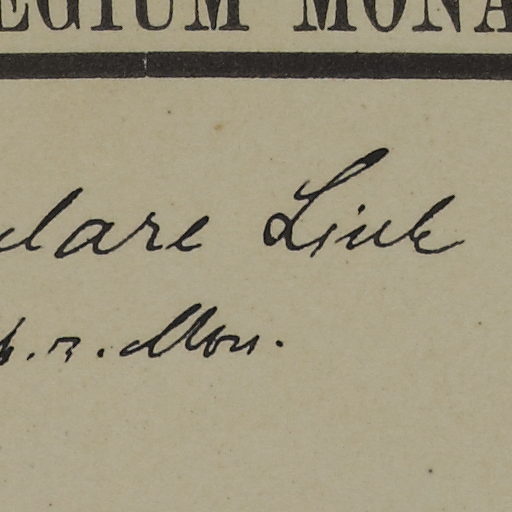 EGIUM MONA
clare Link
h. n. Mon.